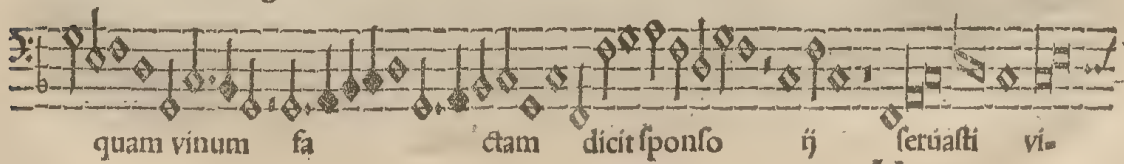 quam vinum fa ctam dicit ſponſo ij ſeruaſti vi=